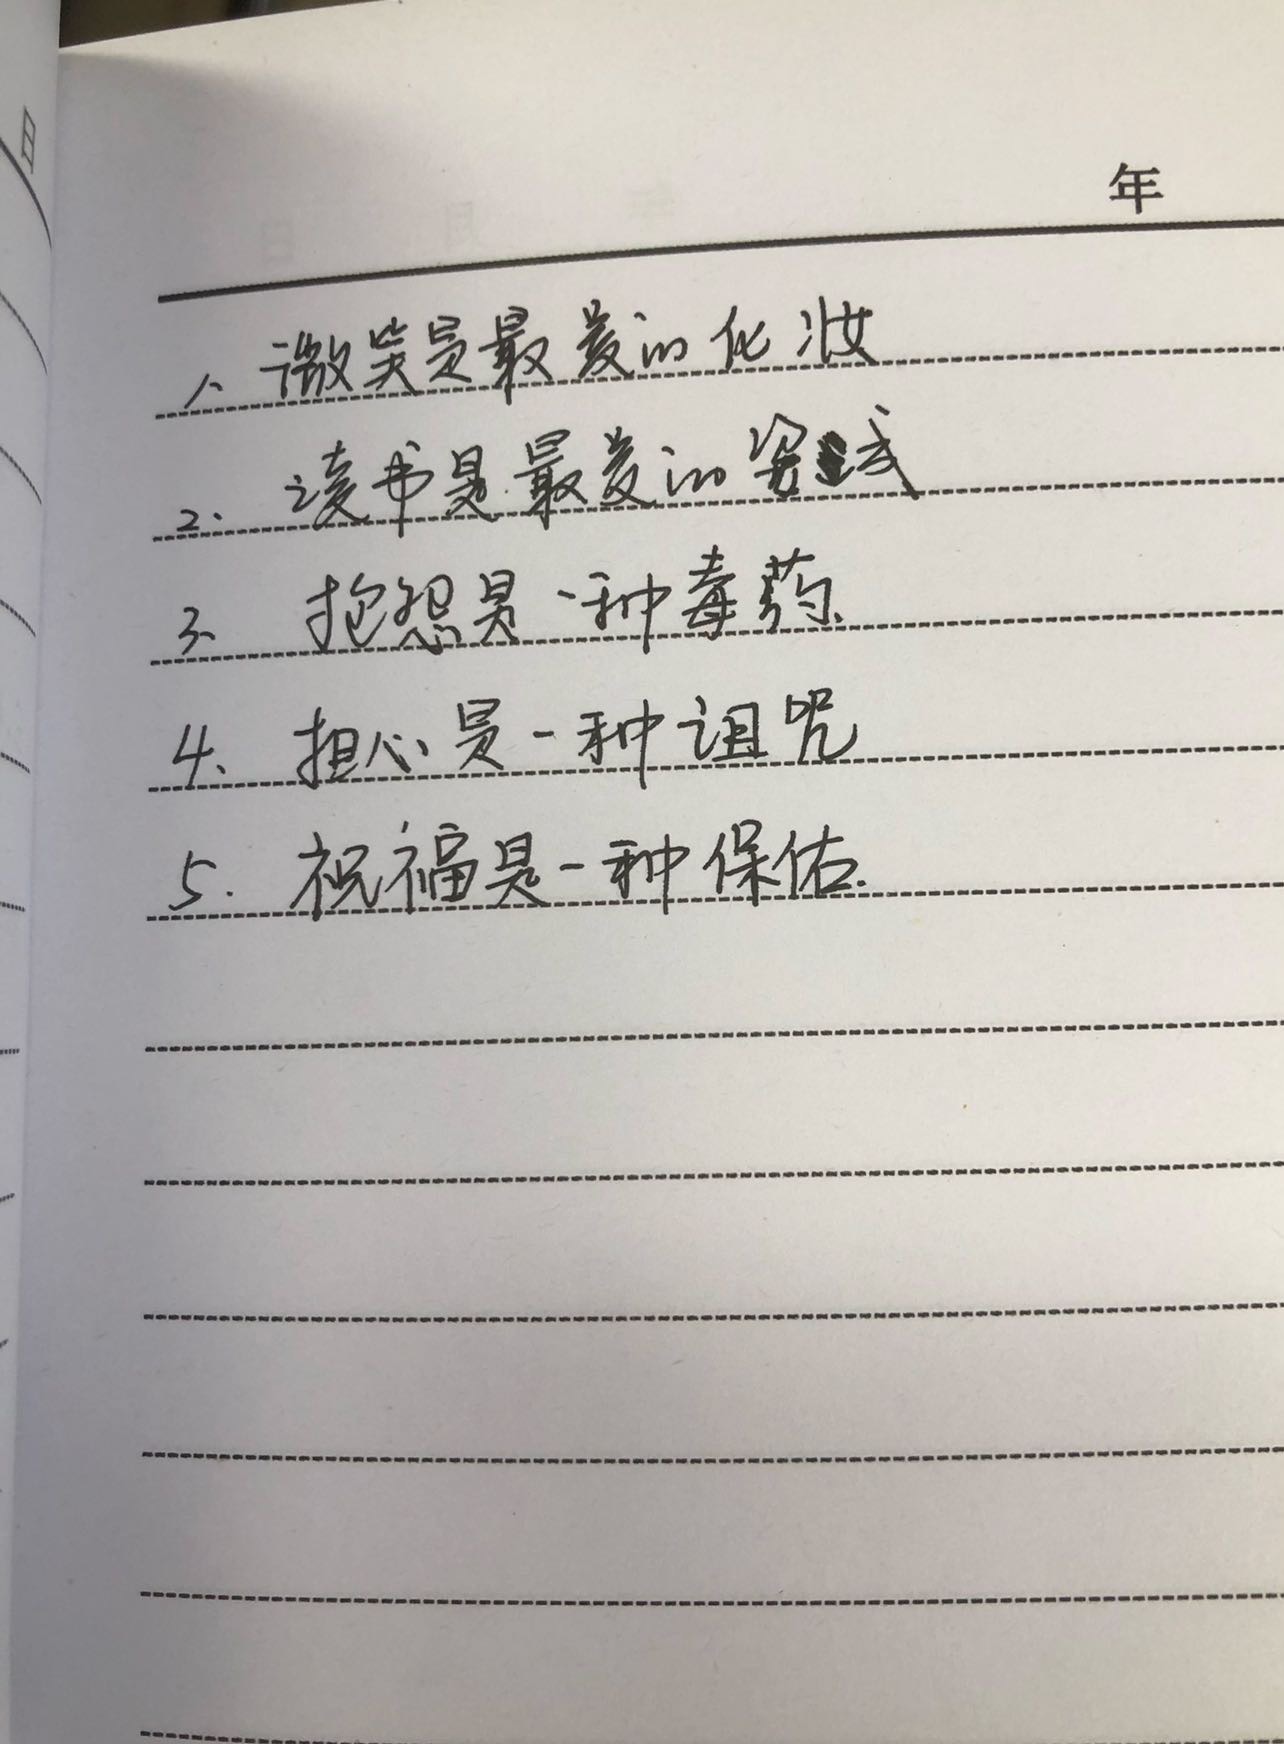 日
年
1. 微笑是最美的化妆
2. 读书是最美的姿式
3. 抱怨是一种毒药.
4. 担心是一种诅咒
5. 祝福是一种保佑.